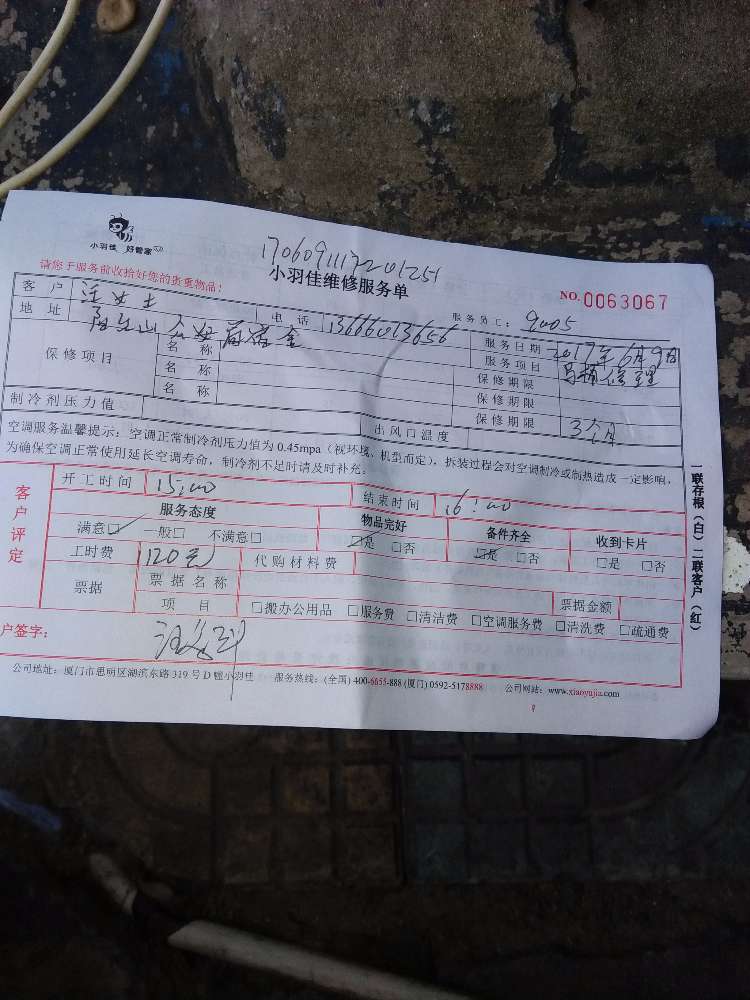 小羽佳 好管家
17060911172201251
请您于服务前收拾好您的贵重物品!
小羽佳维修服务单
NO.0063067
服务员工: 9005
客户 汪女士 电话 13666013656 服务日期 2017年6月9日
地址
服务项目 马桶修理
保修项目 名称 保修期限
名称 保修期限
名称 保修期限 3个月
制冷剂压力值 出风口温度
空调服务温馨提示:空调正常制冷剂压力值为0.45mpa(视环境、机型而定),拆装过程会对空调制冷或制热造成一定影响,
为确保空调正常使用延长空调寿命,制冷剂不足时请及时补充。
客户评定
开工时间 15:00 结束时间 16:00
服务态度 物品完好 备件齐全 收到卡片
满意☑ 一般□ 不满意□ ☑是 □否 ☑是 □否 □是 □否
工时费 120元 代购材料费
票据 票据名称 票据金额
项目 □搬办公用品 □服务费 □清洁费 □空调服务费 □清洗费 □疏通费
户签字:
公司地址:厦门市思明区湖滨东路319号D幢小羽佳 服务热线:(全国)400-6655-888(厦门)0592-5178888 公司网站:www.xiaoyujia.com
一联存根(白) 二联客户(红)